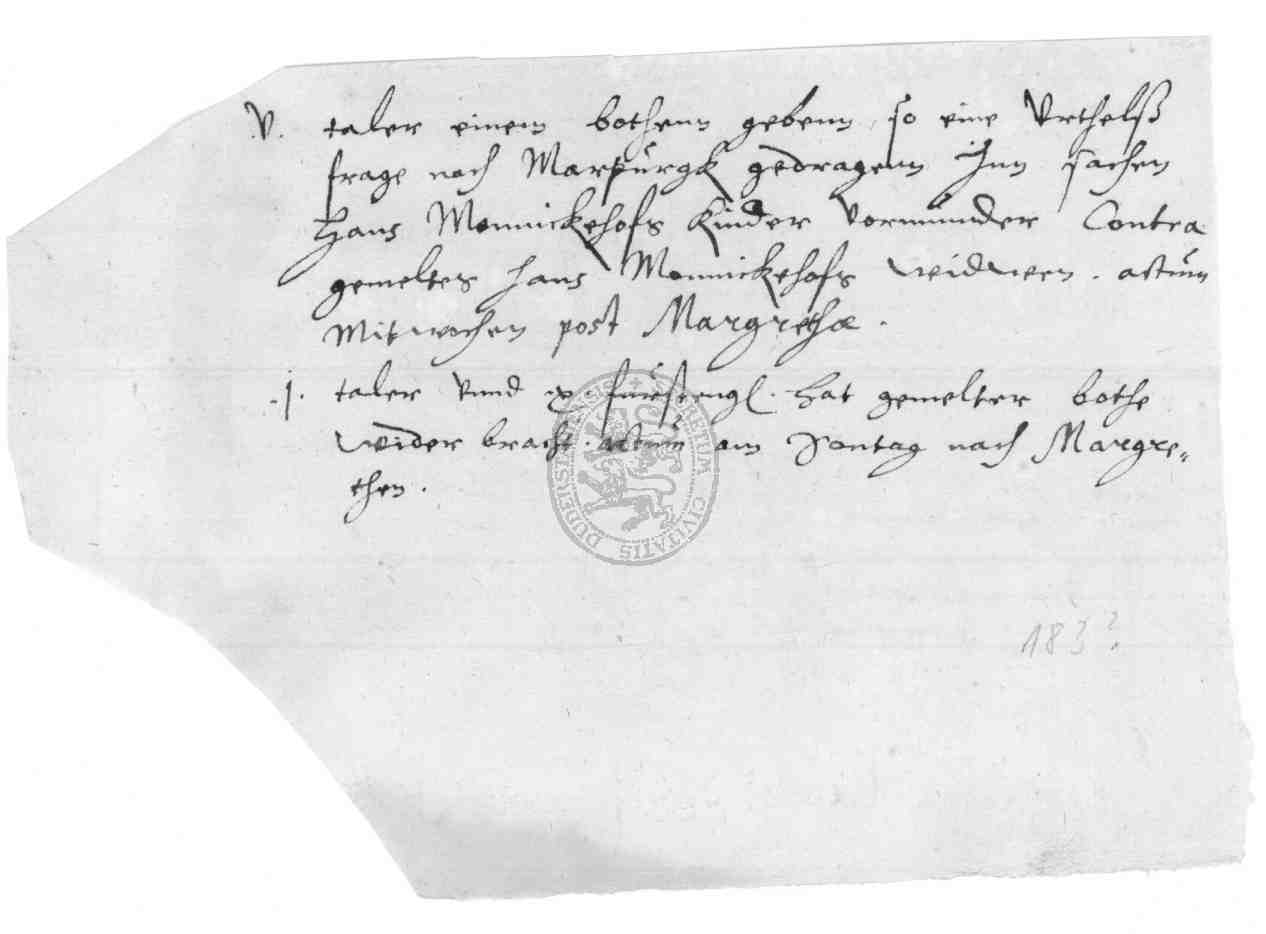 V. taler einem bothenn gebenn, so eine Vrthelß
frage nach Marpurgk gedragenn Inn sachen
Hans Monnickehofs Kinder Vormunder Contra
gemeltes Hans Monnickehofs widwen. actum
Mitwochen post Margrethæ.
.j. taler vnnd x fürstengl. hat gemelter bothe
wider bracht. actum am Sontag nach Margre„
then.
SECRETUM CIVITATIS DUDERSTENSIS
183?